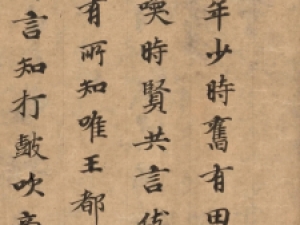 年少時舊有田
喚時賢共言伎
有所知唯王都
言知打皷吹帝